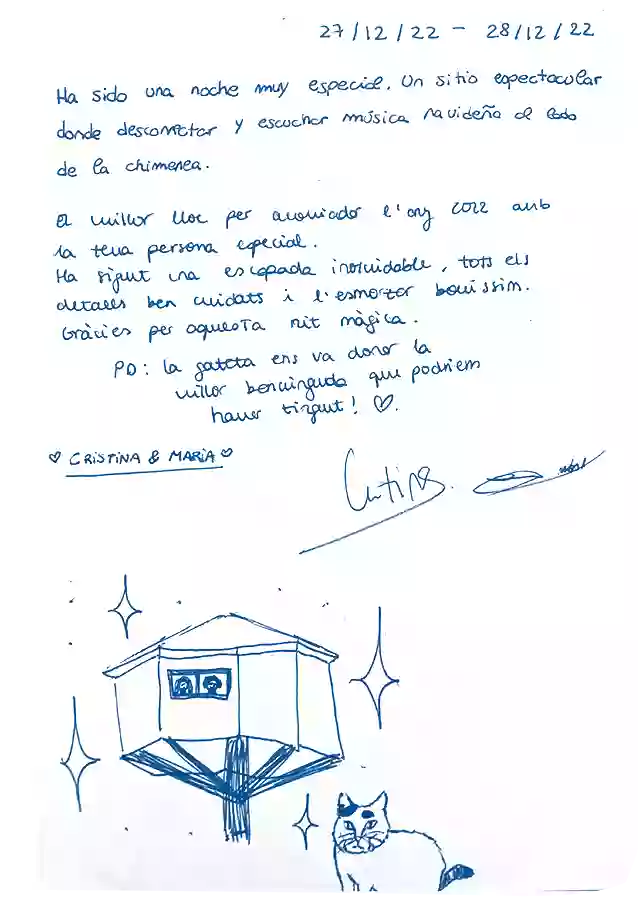 27/12/22 - 28/12/22
Ha sido una noche muy especial. Un sitio espectacular
donde desconectar y escuchar música navideña al lado
de la chimenea.
El millor lloc per acomiadar l'any 2022 amb
la teua persona especial.
Ha sigut una escapada inoluidable, tots els
detalls ben cuidats i l'esmorzar boníssim.
Gràcies per aquesta nit màgica.
PD: la gateta ens va donar la
millor benvinguda que podriem
haver tingut! ♡.
♡ CRISTINA & MARIA ♡
Cristina